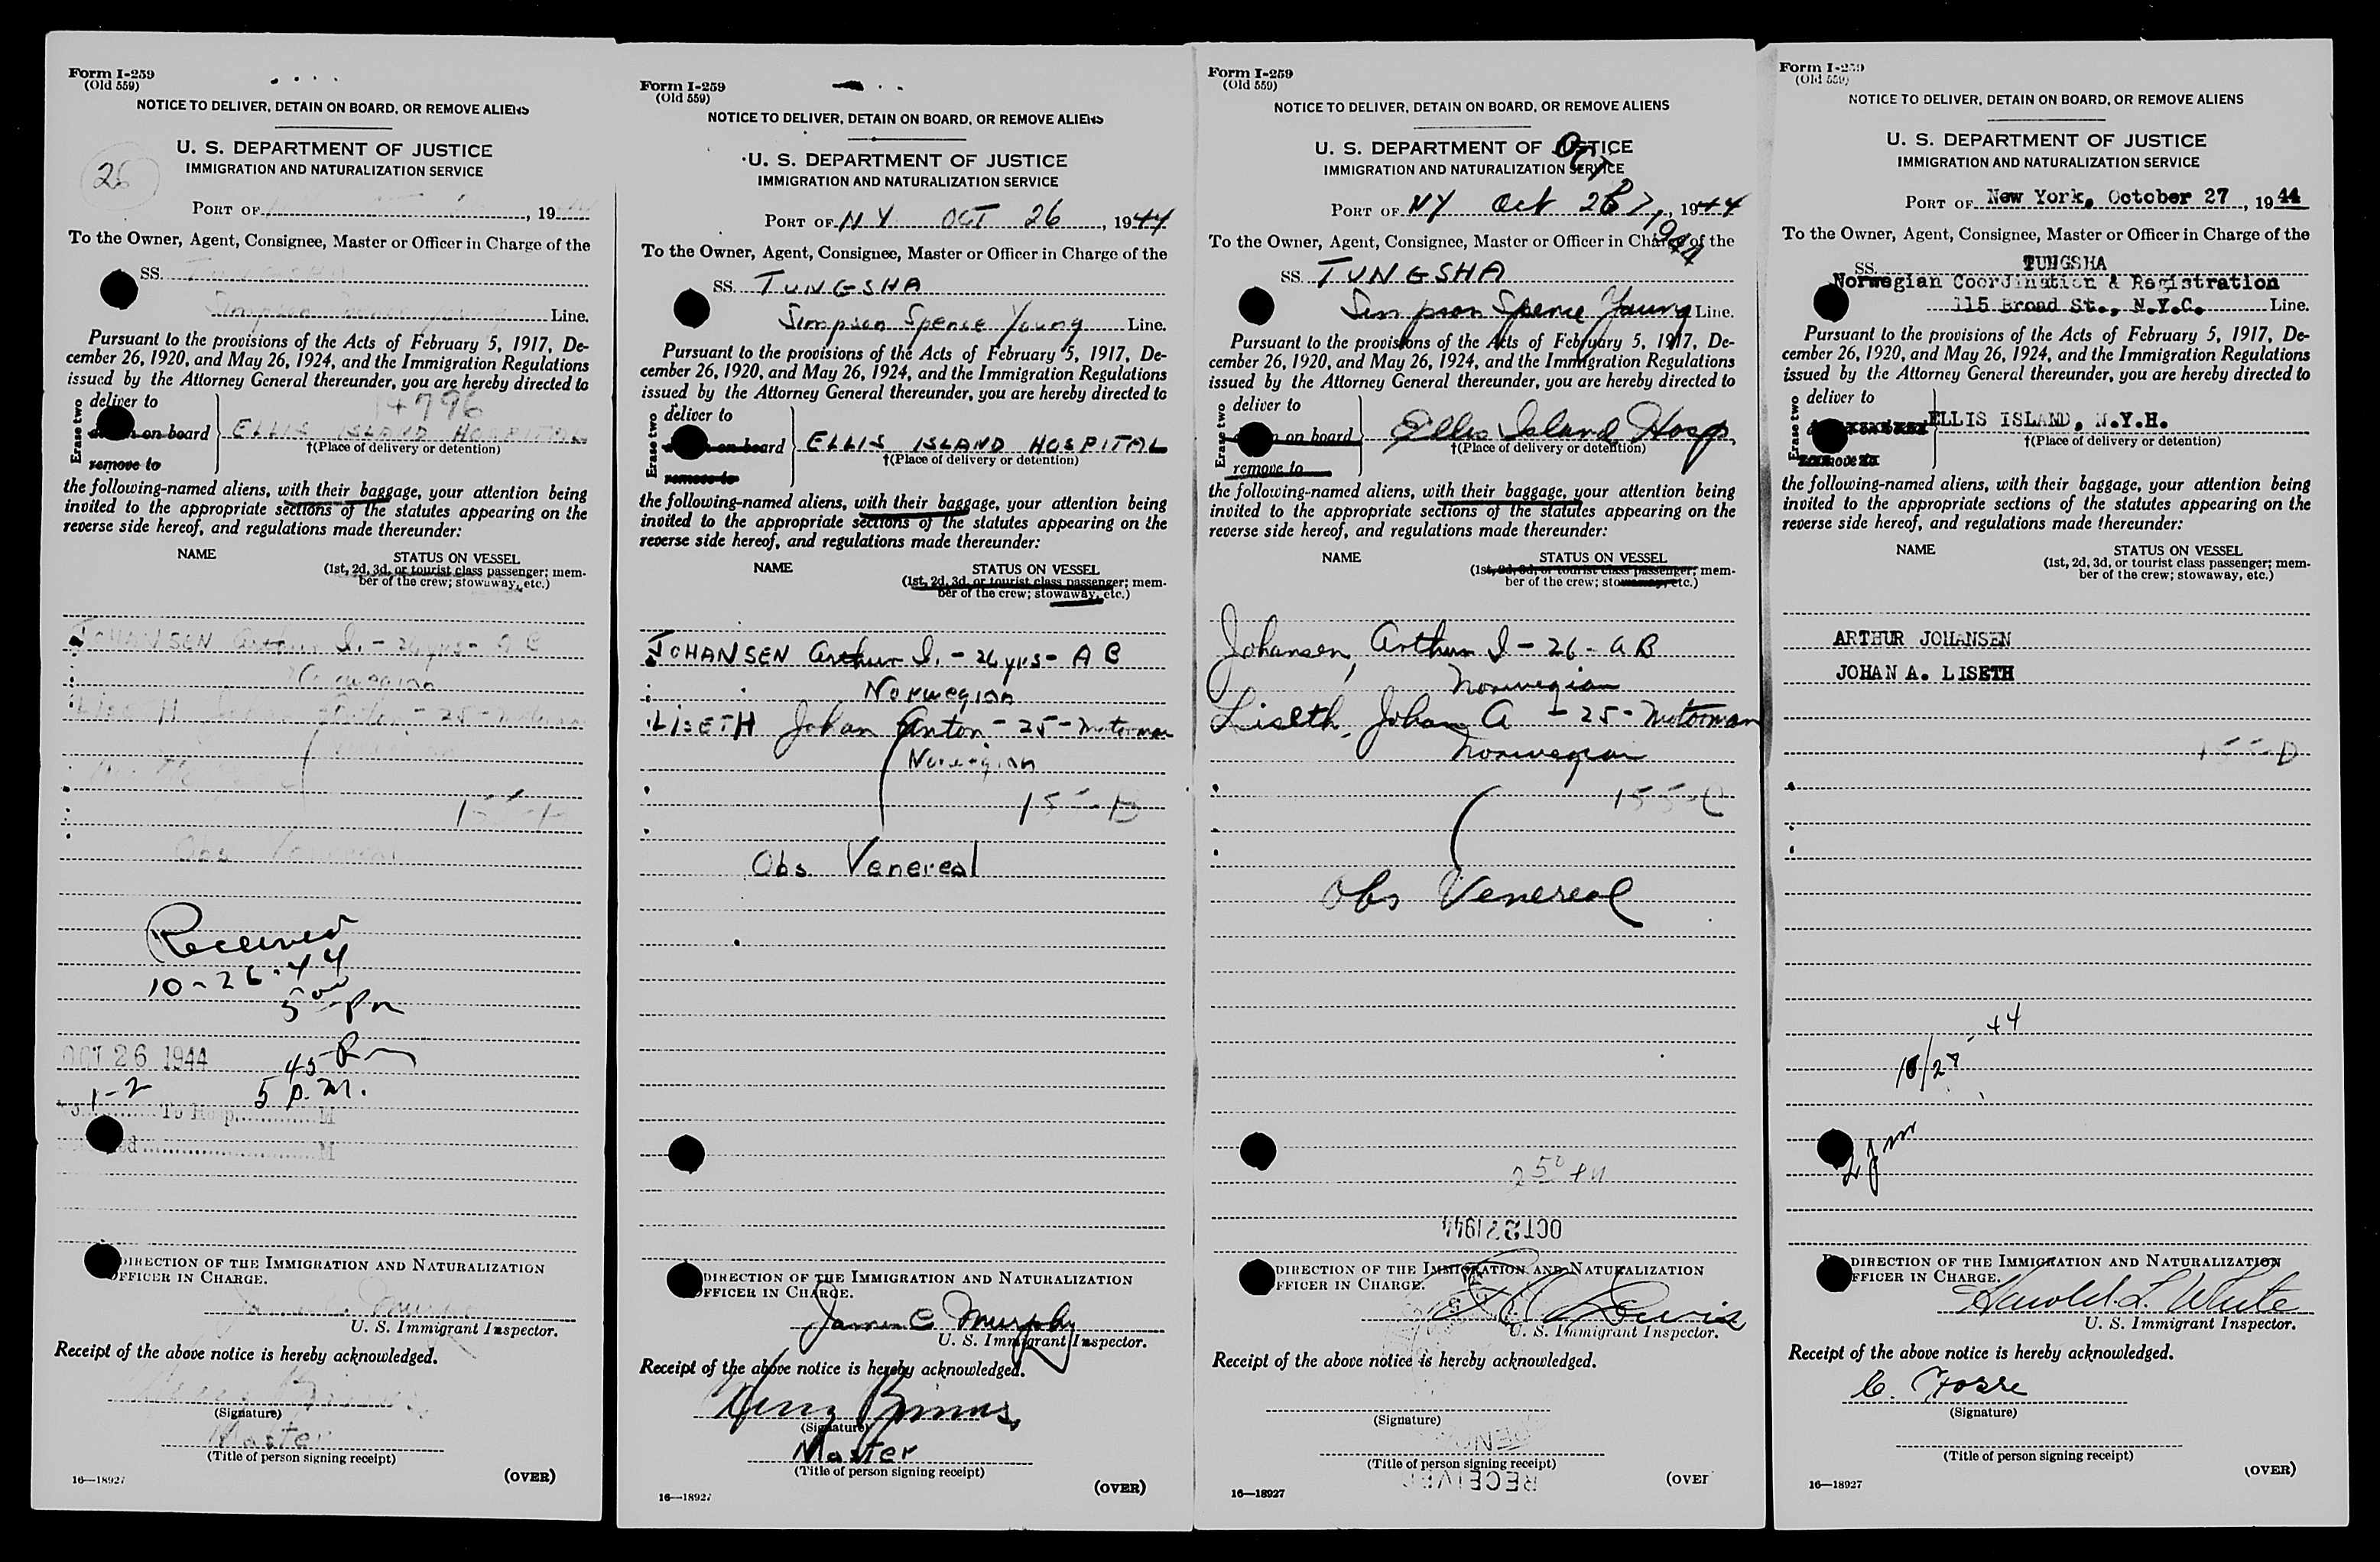 Form I-259
(Old 559)
NOTICE TO DELIVER, DETAIN ON BOARD, OR REMOVE ALIENS
U. S. DEPARTMENT OF JUSTICE
IMMIGRATION AND NATURALIZATION SERVICE
25
PORT OF , 19
To the Owner, Agent, Consignee, Master or Officer in Charge of the
SS. TUNGSHA
Simpson Spence Young Line.
Pursuant to the provisions of the Acts of February 5, 1917, De-
cember 26, 1920, and May 26, 1924, and the Immigration Regulations
issued by the Attorney General thereunder, you are hereby directed to
14796
Erase two
deliver to
on board ELLIS ISLAND HOSPITAL
†(Place of delivery or detention)
remove to
the following-named aliens, with their baggage, your attention being
invited to the appropriate sections of the statutes appearing on the
reverse side hereof, and regulations made thereunder:
NAME STATUS ON VESSEL
(1st, 2d, 3d, or tourist class passenger; mem-
ber of the crew; stowaway, etc.)
JOHANSEN Arthur I. - 26 yrs - A B
Norwegian
LISETH Johan Anton - 25 - Motorman
Norwegian
Obs Venereal
Received
10-26-44
5 00 Pm
OCT 26 1944
45
1-2 5 P.M.
To Hosp. M
M
DIRECTION OF THE IMMIGRATION AND NATURALIZATION
OFFICER IN CHARGE.
James C Murphy
U. S. Immigrant Inspector.
Receipt of the above notice is hereby acknowledged.
(Signature)
Master
(Title of person signing receipt)
16—18927 (OVER)
Form I-259
(Old 559)
NOTICE TO DELIVER, DETAIN ON BOARD, OR REMOVE ALIENS
U. S. DEPARTMENT OF JUSTICE
IMMIGRATION AND NATURALIZATION SERVICE
PORT OF N Y OCT 26, 1944
To the Owner, Agent, Consignee, Master or Officer in Charge of the
SS. TUNGSHA
Simpson Spence Young Line.
Pursuant to the provisions of the Acts of February 5, 1917, De-
cember 26, 1920, and May 26, 1924, and the Immigration Regulations
issued by the Attorney General thereunder, you are hereby directed to
Erase two
deliver to
on board ELLIS ISLAND HOSPITAL
†(Place of delivery or detention)
remove to
the following-named aliens, with their baggage, your attention being
invited to the appropriate sections of the statutes appearing on the
reverse side hereof, and regulations made thereunder:
NAME STATUS ON VESSEL
(1st, 2d, 3d, or tourist class passenger; mem-
ber of the crew; stowaway, etc.)
JOHANSEN Arthur I. - 26 yrs - A B
Norwegian
LISETH Johan Anton - 25 - Motorman
Norwegian
155-B
Obs. Venereal
DIRECTION OF THE IMMIGRATION AND NATURALIZATION
OFFICER IN CHARGE.
James C Murphy
U. S. Immigrant Inspector.
Receipt of the above notice is hereby acknowledged.
(Signature)
Master
(Title of person signing receipt)
16—18927 (OVER)
Form I-259
(Old 559)
NOTICE TO DELIVER, DETAIN ON BOARD, OR REMOVE ALIENS
U. S. DEPARTMENT OF JUSTICE
IMMIGRATION AND NATURALIZATION SERVICE
OCT 27, 1944
PORT OF NY Oct 26, 1944
To the Owner, Agent, Consignee, Master or Officer in Charge of the
SS. TUNGSHA
Simpson Spence Young Line.
Pursuant to the provisions of the Acts of February 5, 1917, De-
cember 26, 1920, and May 26, 1924, and the Immigration Regulations
issued by the Attorney General thereunder, you are hereby directed to
Erase two
deliver to
on board Ellis Island Hosp.
†(Place of delivery or detention)
remove to
the following-named aliens, with their baggage, your attention being
invited to the appropriate sections of the statutes appearing on the
reverse side hereof, and regulations made thereunder:
NAME STATUS ON VESSEL
(1st, 2d, 3d, or tourist class passenger; mem-
ber of the crew; stowaway, etc.)
Johansen, Arthur I - 26 - A B
Norwegian
Liseth, Johan A - 25 - Motorman
Norwegian
155-C
Obs Venereal
2 50 PM
OCT 27 1944
DIRECTION OF THE IMMIGRATION AND NATURALIZATION
OFFICER IN CHARGE.
Lewis
U. S. Immigrant Inspector.
Receipt of the above notice is hereby acknowledged.
(Signature)
(Title of person signing receipt)
RECEIVED
16—18927 (OVER
Form I-259
(Old 559)
NOTICE TO DELIVER, DETAIN ON BOARD, OR REMOVE ALIENS
U. S. DEPARTMENT OF JUSTICE
IMMIGRATION AND NATURALIZATION SERVICE
PORT OF New York, October 27, 1944
To the Owner, Agent, Consignee, Master or Officer in Charge of the
SS. TUNGSHA
Norwegian Coordination & Registration
115 Broad St., N.Y.C. Line.
Pursuant to the provisions of the Acts of February 5, 1917, De-
cember 26, 1920, and May 26, 1924, and the Immigration Regulations
issued by the Attorney General thereunder, you are hereby directed to
Erase two
deliver to
ELLIS ISLAND, N.Y.H.
†(Place of delivery or detention)
the following-named aliens, with their baggage, your attention being
invited to the appropriate sections of the statutes appearing on the
reverse side hereof, and regulations made thereunder:
NAME STATUS ON VESSEL
(1st, 2d, 3d, or tourist class passenger; mem-
ber of the crew; stowaway, etc.)
ARTHUR JOHANSEN
JOHAN A. LISETH
155-D
10/27-44
DIRECTION OF THE IMMIGRATION AND NATURALIZATION
OFFICER IN CHARGE.
Harold L. White
U. S. Immigrant Inspector.
Receipt of the above notice is hereby acknowledged.
C. Fosse
(Signature)
(Title of person signing receipt)
16—18927 (OVER)